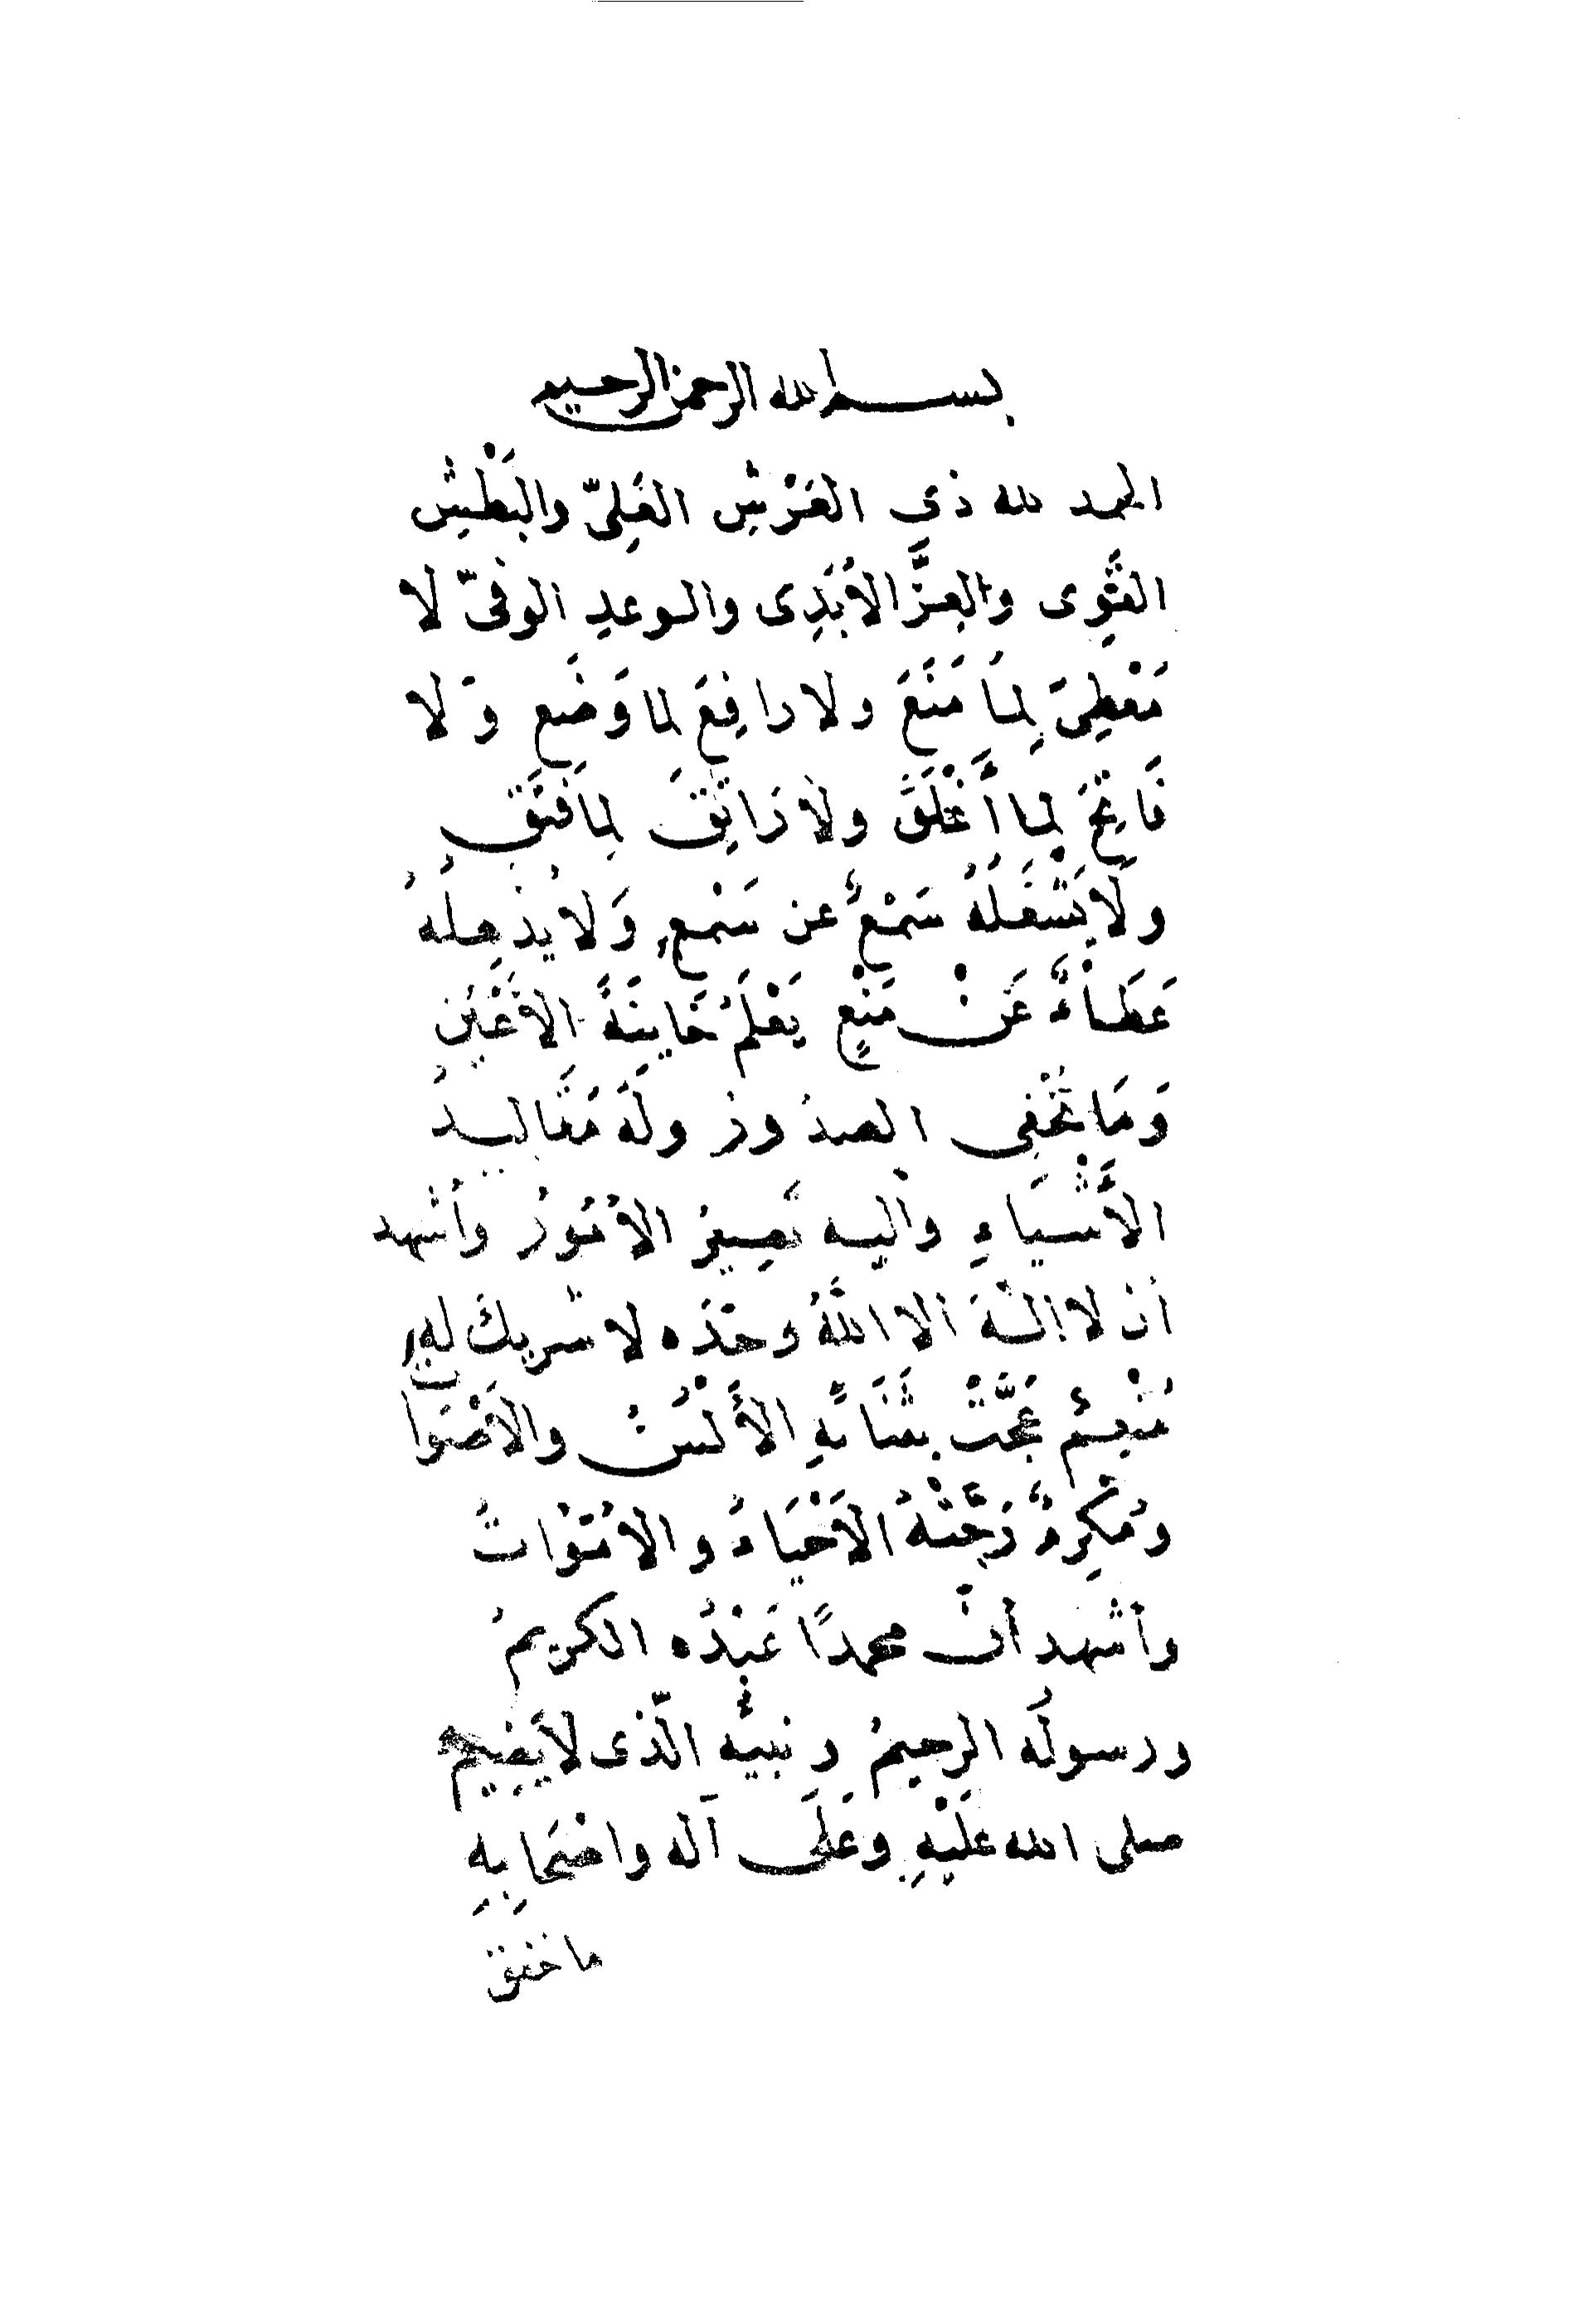 بسم الله الرحمن الرحيم
الحمد لله ذي العَرْشِ العَلِىّ والبَطْشِ
القَوِى والعِزَّ الأَبَدِى والوعدِ الوفىّ لا
مُعْطِىَ لِمَا مَنَعَ ولا رافِعَ لما وَضَعِ وَلا
فَاتِحَ لِما أَغْلَقَ ولا رَاتِقَ لِمَا فَتَقِ
ولَا يَشْغَلُهُ سَمْعٌ عن سَمْعٍ وَلا يُذْهِلُهُ
عَطَاءٌ عَنْ مَنْعٍ يَعْلَمُ خَاينَةَ الأَعْيُنِ
وَمَا تُخْفِى الصدُورُ ولَهُ مَقَاليدُ
الأَشْيَاءِ واليه تَصِيرُ الأُمُورُ وأشهد
أن لا إلهَ الا اللَّهُ وحدَه لا شريكَ لهِ
مُنْعِمٌ عَجَّتْ بثَنَائهِ الأَلْسُنُ والأَصْوَاتُ
ومُكْرِمٌ رَجَّتْهُ الأَحْيَاءُ والأمْوَاتُ
وأشهد أنّ محمدًا عَبْدُه الكريمُ
ورسولُه الرحيمُ ونبيُّه الّذى لايَضِيمُ
صلى الله علَيْهِ وعَلَى آله واصْحَابِهِ
ما خفق